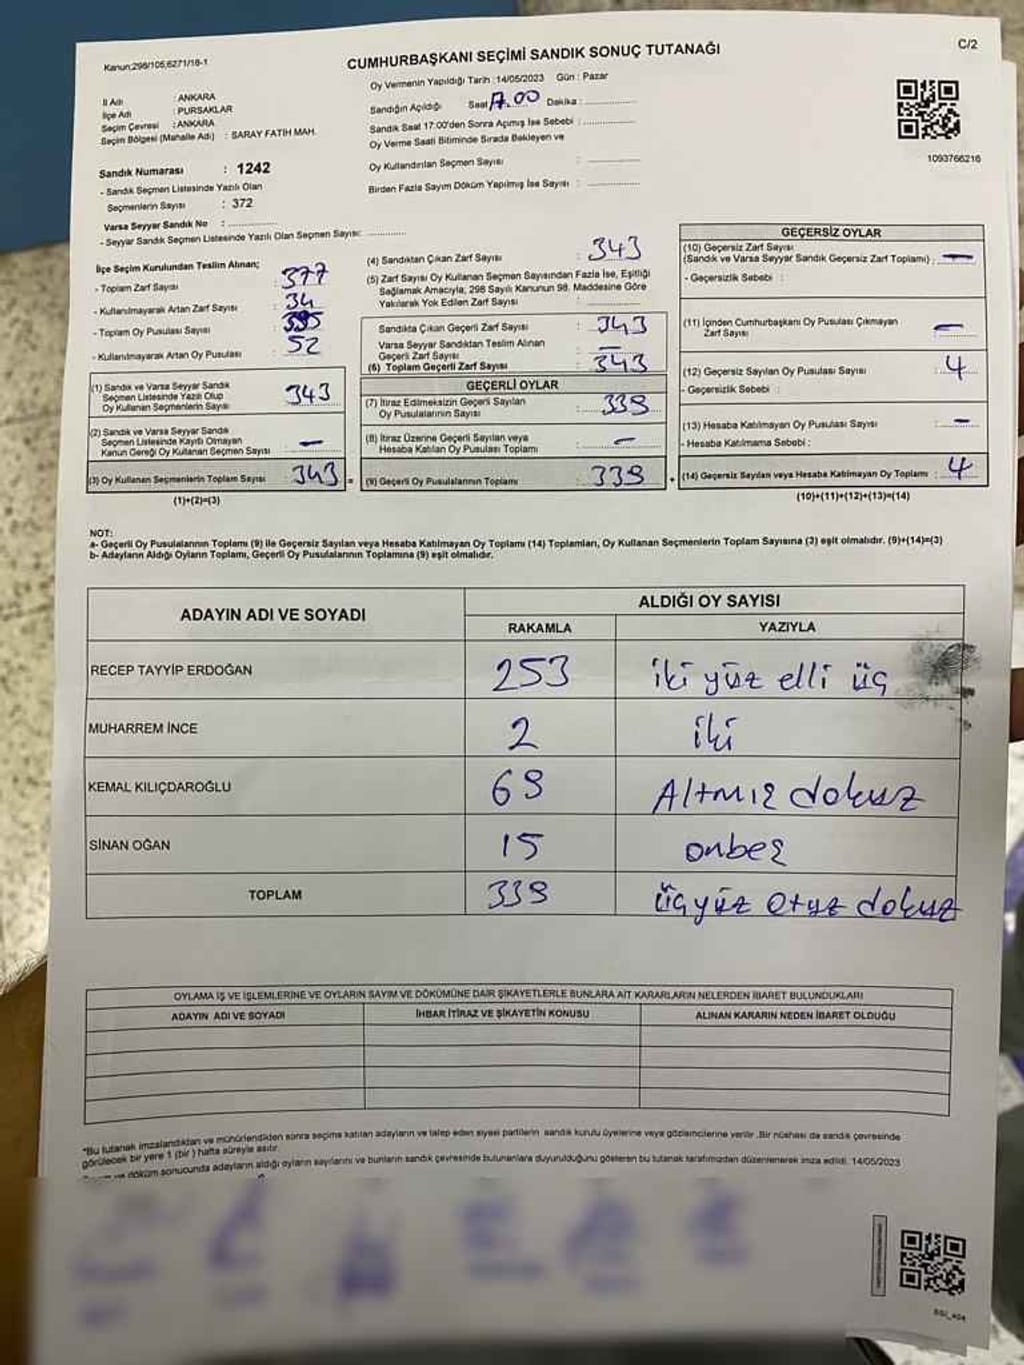 Kanun:298/105,6271/18-1
CUMHURBAŞKANI SEÇİMİ SANDIK SONUÇ TUTANAĞI
C/2
İl Adı : ANKARA
İlçe Adı : PURSAKLAR
Seçim Çevresi : ANKARA
Seçim Bölgesi (Mahalle Adı) : SARAY FATİH MAH.
Oy Vermenin Yapıldığı Tarih :14/05/2023 Gün : Pazar
Sandığın Açıldığı Saat 17.00 Dakika :
Sandık Saat 17:00'den Sonra Açımış İse Sebebi :
Oy Verme Saati Bitiminde Sırada Bekleyen ve
Oy Kullandırılan Seçmen Sayısı :
Birden Fazla Sayım Döküm Yapılmış İse Sayısı :
1093766216
Sandık Numarası : 1242
- Sandık Seçmen Listesinde Yazılı Olan
Seçmenlerin Sayısı : 372
Varsa Seyyar Sandık No :
- Seyyar Sandık Seçmen Listesinde Yazılı Olan Seçmen Sayısı:
İlçe Seçim Kurulundan Teslim Alınan;
- Toplam Zarf Sayısı : 377
- Kullanılmayarak Artan Zarf Sayısı : 34
- Toplam Oy Pusulası Sayısı : 395
- Kullanılmayarak Artan Oy Pusulası : 52
(1) Sandık ve Varsa Seyyar Sandık
Seçmen Listesinde Yazılı Olup
Oy Kullanan Seçmenlerin Sayısı : 343
(2) Sandık ve Varsa Seyyar Sandık
Seçmen Listesinde Kayıtlı Olmayan
Kanun Gereği Oy Kullanan Seçmen Sayısı : —
(3) Oy Kullanan Seçmenlerin Toplam Sayısı : 343 =
(1)+(2)=(3)
(4) Sandıktan Çıkan Zarf Sayısı : 343
(5) Zarf Sayısı Oy Kullanan Seçmen Sayısından Fazla İse, Eşitliği
Sağlamak Amacıyla, 298 Sayılı Kanunun 98. Maddesine Göre
Yakılarak Yok Edilen Zarf Sayısı :
Sandıkta Çıkan Geçerli Zarf Sayısı : 343
Varsa Seyyar Sandıktan Teslim Alınan
Geçerli Zarf Sayısı : —
(6) Toplam Geçerli Zarf Sayısı : 343
GEÇERLİ OYLAR
(7) İtiraz Edilmeksizin Geçerli Sayılan
Oy Pusulalarının Sayısı : 339
(8) İtiraz Üzerine Geçerli Sayılan veya
Hesaba Katılan Oy Pusulası Toplamı : —
(9) Geçerli Oy Pusulalarının Toplamı : 339 +
GEÇERSİZ OYLAR
(10) Geçersiz Zarf Sayısı
(Sandık ve Varsa Seyyar Sandık Geçersiz Zarf Toplamı) : —
- Geçersizlik Sebebi :
(11) İçinden Cumhurbaşkanı Oy Pusulası Çıkmayan
Zarf Sayısı : —
(12) Geçersiz Sayılan Oy Pusulası Sayısı : 4
- Geçersizlik Sebebi :
(13) Hesaba Katılmayan Oy Pusulası Sayısı : —
- Hesaba Katılmama Sebebi :
(14) Geçersiz Sayılan veya Hesaba Katılmayan Oy Toplamı : 4
(10)+(11)+(12)+(13)=(14)
NOT:
a- Geçerli Oy Pusulalarının Toplamı (9) ile Geçersiz Sayılan veya Hesaba Katılmayan Oy Toplamı (14) Toplamları, Oy Kullanan Seçmenlerin Toplam Sayısına (3) eşit olmalıdır. (9)+(14)=(3)
b- Adayların Aldığı Oyların Toplamı, Geçerli Oy Pusulalarının Toplamına (9) eşit olmalıdır.
ADAYIN ADI VE SOYADI ALDIĞI OY SAYISI
RAKAMLA YAZIYLA
RECEP TAYYİP ERDOĞAN 253 iki yüz elli üç
MUHARREM İNCE 2 iki
KEMAL KILIÇDAROĞLU 69 Altmış dokuz
SİNAN OĞAN 15 onbeş
TOPLAM 339 üçyüz otuz dokuz
OYLAMA İŞ VE İŞLEMLERİNE VE OYLARIN SAYIM VE DÖKÜMÜNE DAİR ŞİKAYETLERLE BUNLARA AİT KARARLARIN NELERDEN İBARET BULUNDUKLARI
ADAYIN ADI VE SOYADI İHBAR İTİRAZ VE ŞİKAYETİN KONUSU ALINAN KARARIN NEDEN İBARET OLDUĞU
*Bu tutanak imzalandıktan ve mühürlendikten sonra seçime katılan adayların ve talep eden siyasi partilerin sandık kurulu üyelerine veya gözlemcilerine verilir .Bir nüshası da sandık çevresinde
görülecek bir yere 1 (bir ) hafta süreyle asılır.
ve döküm sonucunda adayların aldığı oyların sayılarını ve bunların sandık çevresinde bulunanlara duyurulduğunu gösteren bu tutanak tarafımızdan düzenlenerek imza edildi. 14/05/2023